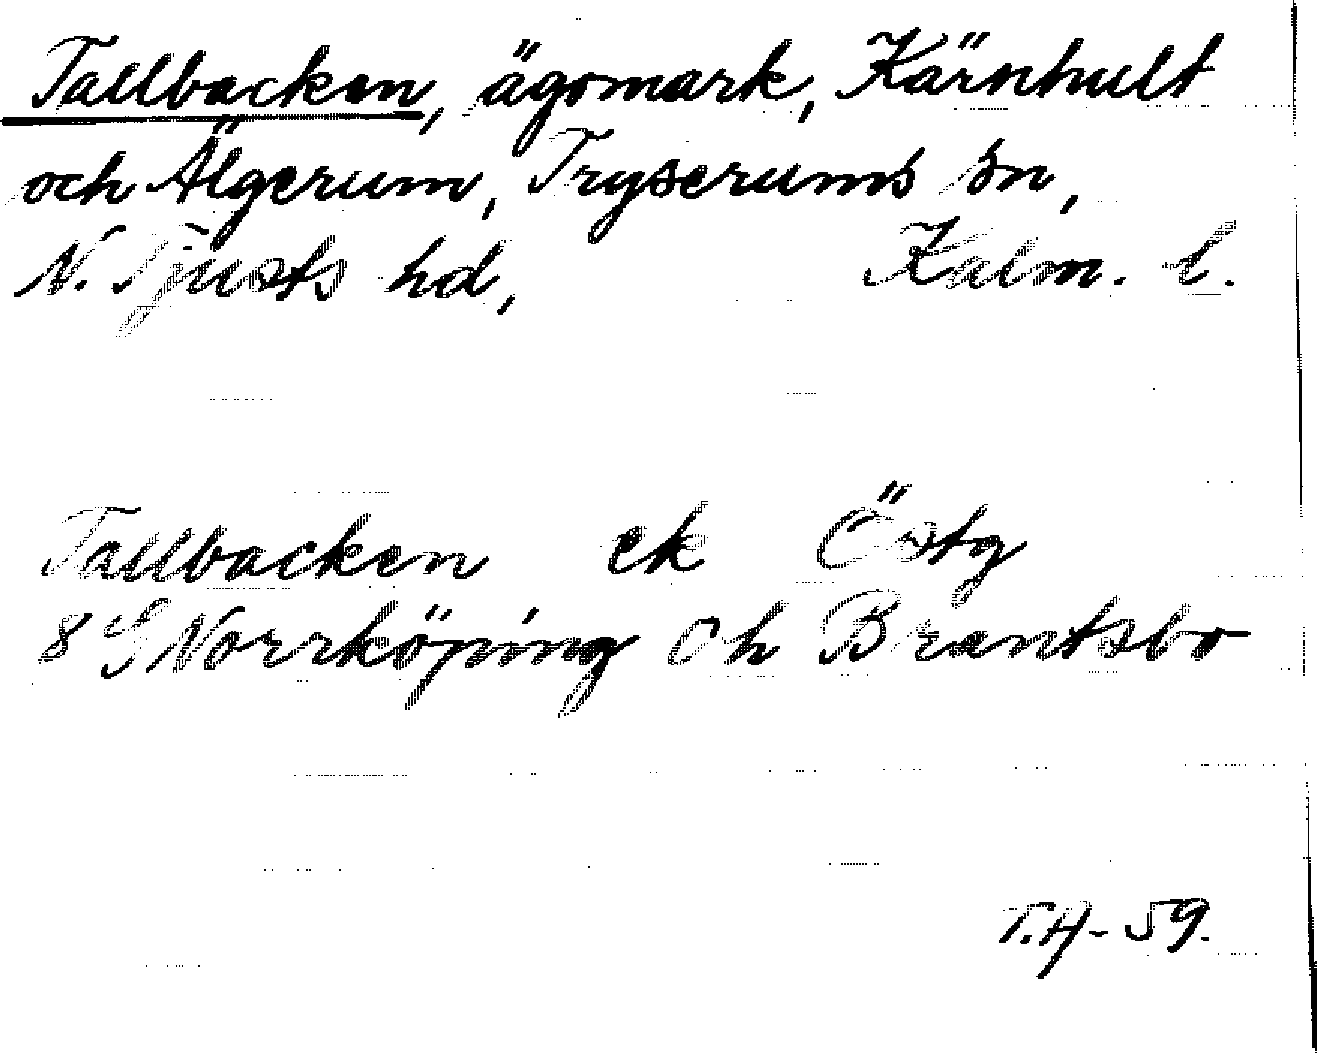 Tallbacken, ägomark, Kärnhult
och Älgerum, Tryserums sn,
N. Tjusts hd, Kalm. l.
Tallbacken ek Östg
8 G Norrköping Oh Brantsbo
T.H-59.